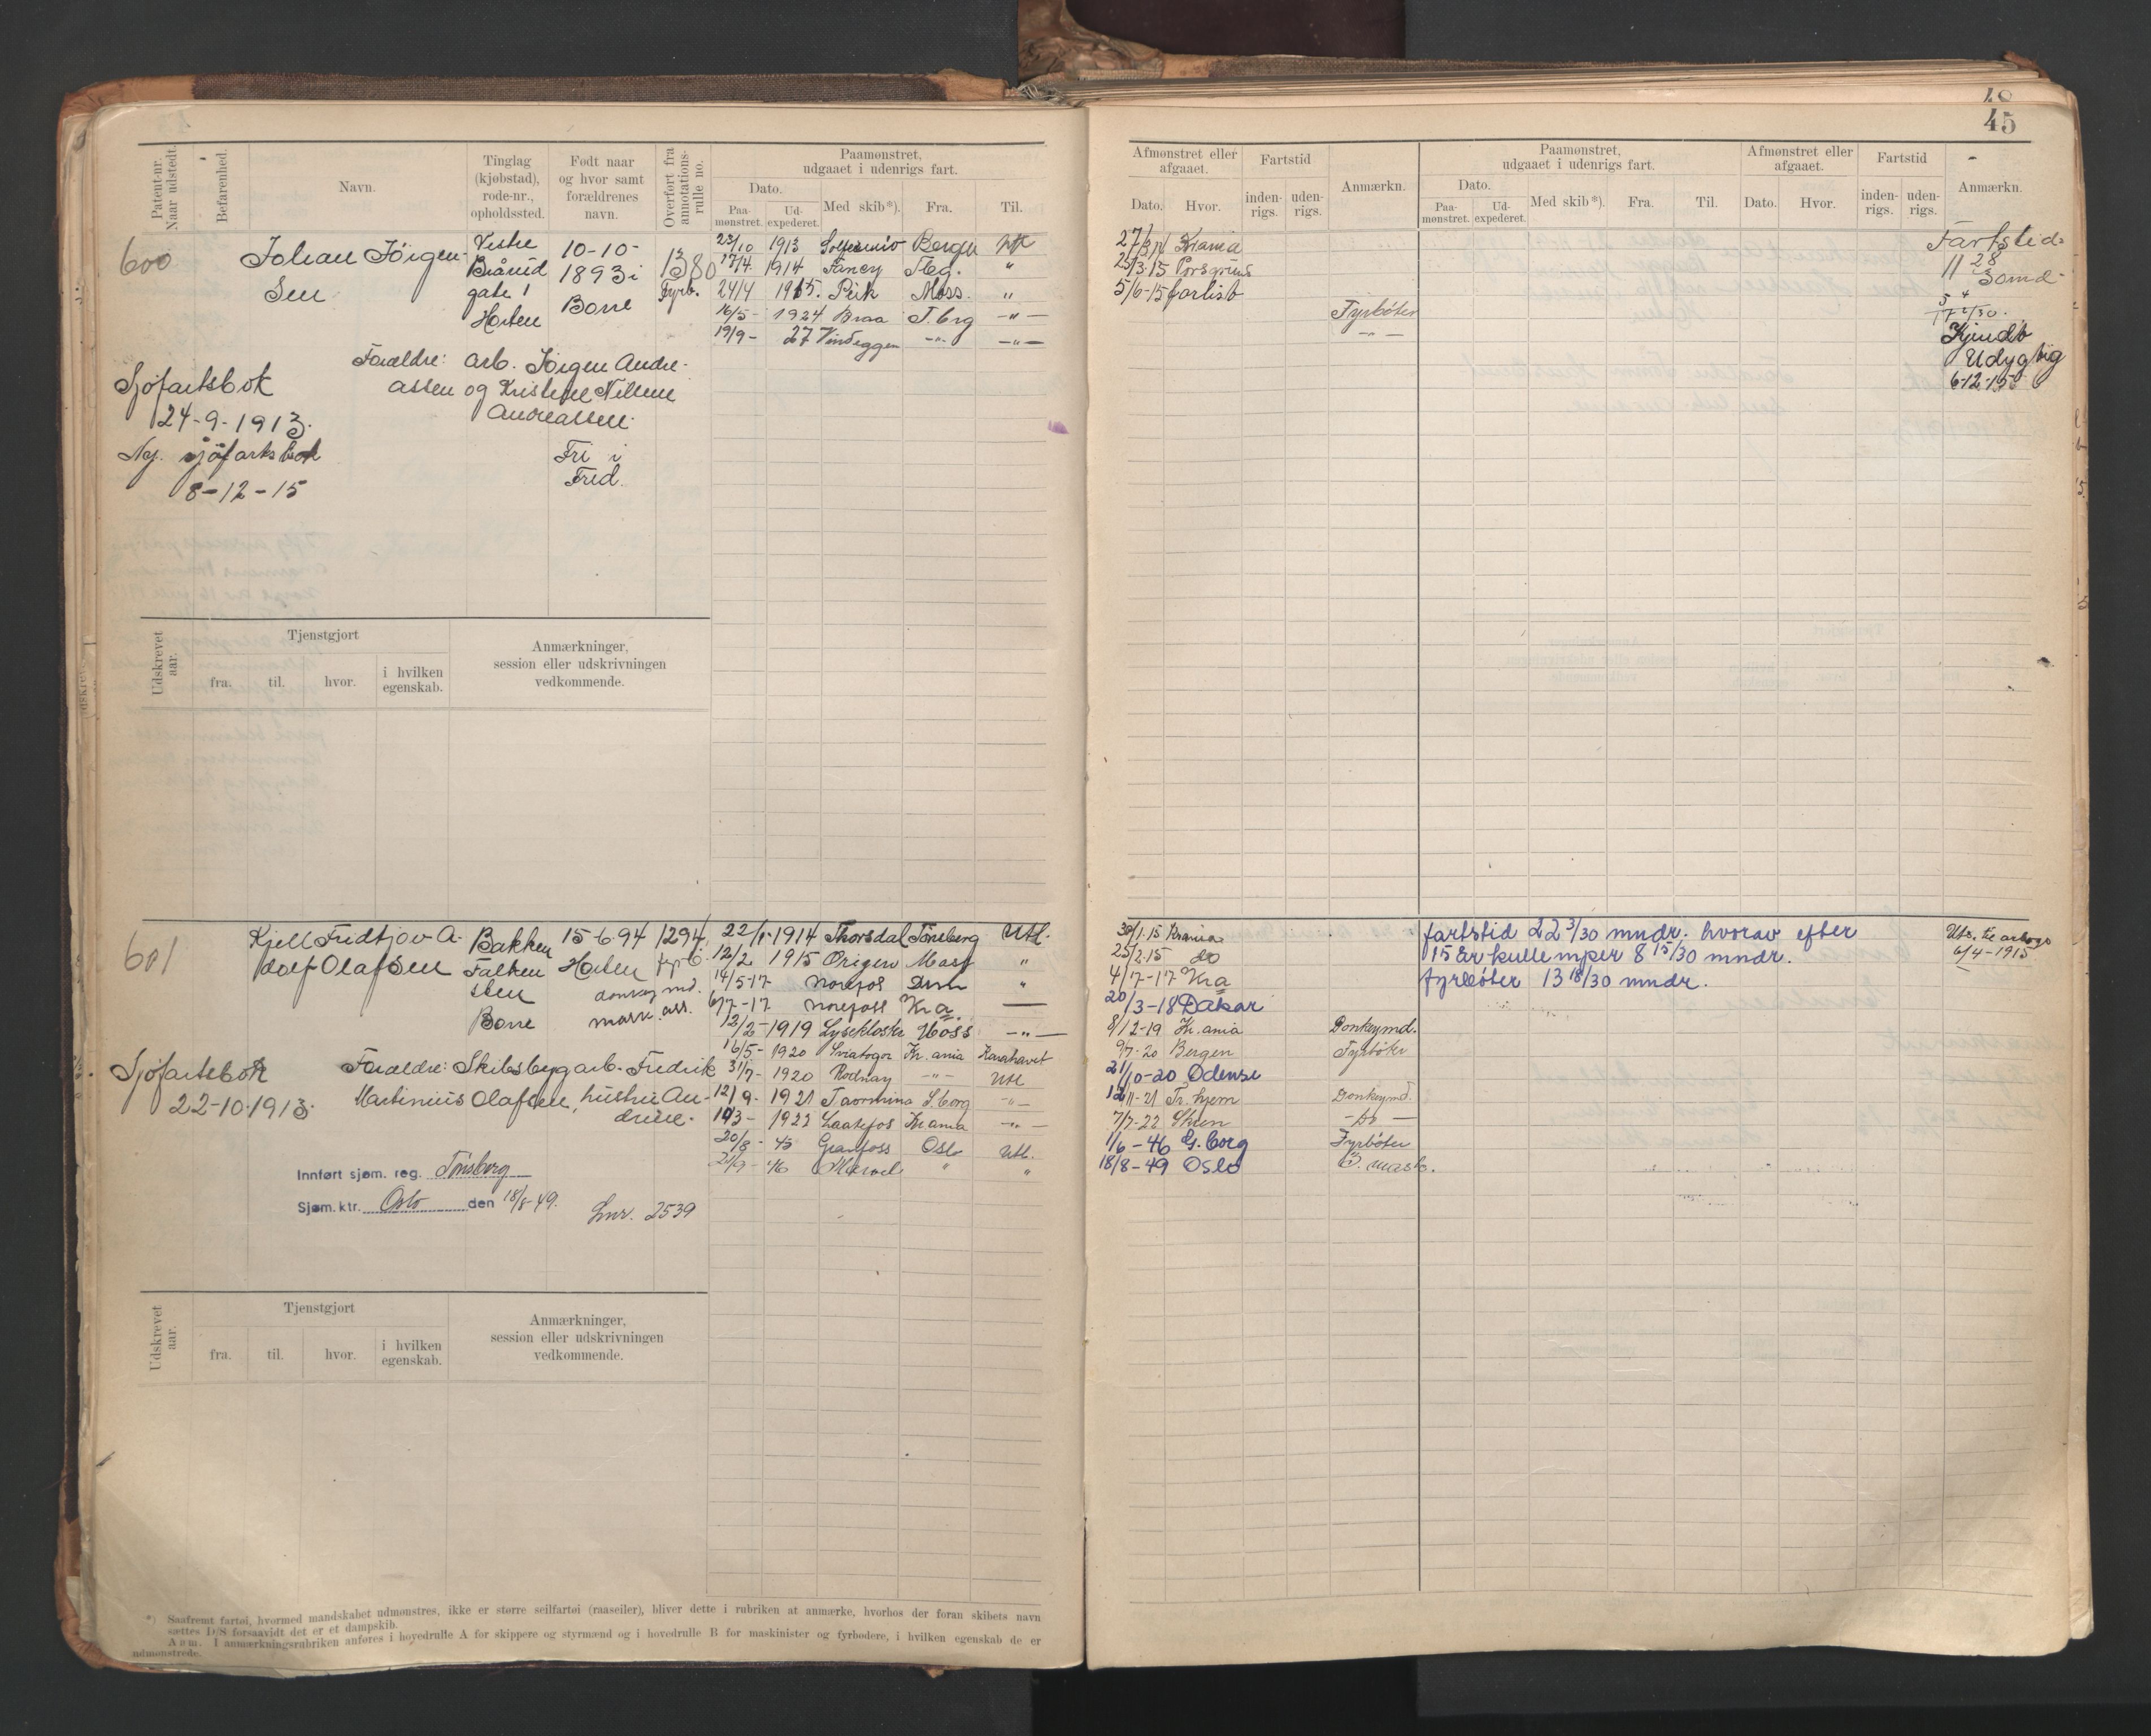 48
45
Patent-nr. Naar udstedt.
Befarenhed.
Navn.
Tinglag (kjøbstad), rode-nr., opholdssted.
Født naar og hvor samt forældrenes navn.
Overført fra annotations-rulle no.
Paamønstret, udgaaet i udenrigs fart.
Dato.
Paa-mønstret.
Ud-expederet.
Med skib*).
Fra.
Til.
600
Johan Jörgen-
sen
Vestre
Bråruid
gate 1
Horten
10-10-
1893 i
Borre
1380
Fyrb.
23/10 1913 Solferino Bergen Utl
17/4 1914 Fancy Tbg. "
24/4 1915. Peik Moss. "
16/5- 1924 Braa T.brg -"-
19/9- 27 Vindeggen -"- -"-
Forældre: arb. Jörgen Andre-
assen og Kristine Nilsine
Andreassen.
Sjøfartsbok
24-9-1913.
Ny. sjøfartsbok
8-12-15
Fri i
Fred.
Udskrevet aar.
Tjenstgjort
fra.
til.
hvor.
i hvilken egenskab.
Anmærkninger, session eller udskrivningen vedkommende.
601
Kjell Fridtjov A-
dolf Olafsen
Bakken
Falken
sten
Borre
15-6-94
Horten
donkeymd.
mask. ass.
1294
fyrb.
22/1-1914 Thorsdal Tönsberg Utl.
12/2 1915 Origen Moss "
14/5-17 Norefos Drm "
6/7-17 Norefoss Kra. —
12/2-1919 Lysekloster Moss -"-
16/5- 1920 Sviatogor Kr.ania Karahavet
31/7- 1920 Rodnay -"- Utl
12/9- 1921 Taormina S.borg -"-
1/3- 1922 Laatefos Kr ania -"-
20/8- 45 Granfoss Oslo Utl.
21/9- 46 " "
Sjøfartsbok
22-10-1913.
Forældre: Skibsbygarb. Fredrik
Martinius Olafsen, hustru An-
drine.
Innført sjøm. reg. Tönsberg
Sjøm.ktr. Oslo den 18/8-49.
Lnr. 2539
Udskrevet aar.
Tjenstgjort
fra.
til.
hvor.
i hvilken egenskab.
Anmærkninger, session eller udskrivningen vedkommende.
*) Saafremt fartøi, hvormed mandskabet udmønstres, ikke er større seilfartøi (raaseiler), bliver dette i rubriken at anmærke, hvorhos der foran skibets navn
sættes D/S forsaavidt det er et dampskib.
Anm. I anmærkningsrubriken anføres i hovedrulle A for skippere og styrmænd og i hovedrulle B for maskinister og fyrbødere, i hvilken egenskab de er
udmønstrede.
Afmønstret eller afgaaet.
Dato.
Hvor.
Fartstid
inden-rigs.
uden-rigs.
Anmærkn.
Paamønstret, udgaaet i udenrigs fart.
Dato.
Paa-mønstret.
Ud-expederet.
Med skib*).
Fra.
Til.
Afmønstret eller afgaaet.
Dato.
Hvor.
Fartstid
inden-rigs.
uden-rigs.
Anmærkn.
27/3 14 Krania
25/3.15 Porsgrund
5/6-15 forlist
Fyrbøter
-"-
Fartstid=
11 28/30 md-
Kjendt
Udygtig
6-12-15
30/1.15 Krania
25/2.15 do
4/7-17 Kra
20/3-18 Dakar
8/12-19 Kr.ania Donkeymd.
9/7-20 Bergen Fyrbøter
21/10-20 Odense
12/11-21 Tr.hjem Donkeymd.
7/7-22 Skien -do-
1/6-46 G.borg Fyrbøter
18/8-49 Oslo 3. mask.
fartstid 22 3/30 mndr. hvorav efter
15 år kullemper 8 15/30 mndr.
fyrbøter 13 18/30 mndr.
6/4-1915